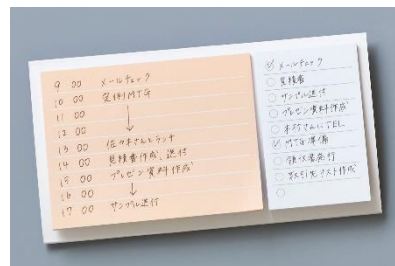 9 00 メールチェック
10 00 定例MTG
11 00 ↓
12 00
13 00 佐々木さんとランチ
14 00 見積書作成、送付
15 00 プレゼン資料作成
16 00 ↓
17 00 サンプル送付
メールチェック
見積書
サンプル送付
プレゼン資料作成
さんにTEL
MTG準備
領収書発行
取引先リスト作成